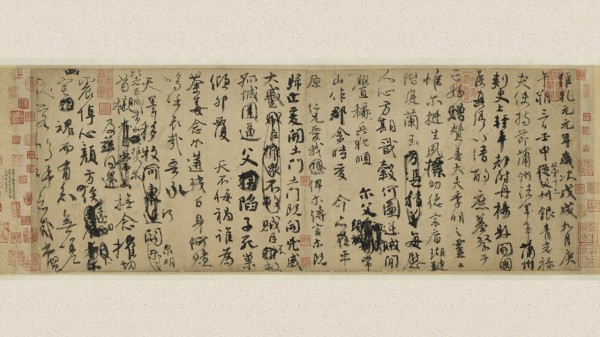 維乾元元年歲次戊戌九月庚
午朔三日壬申第十三叔銀青光祿
夫使持節蒲州諸軍事蒲州
刺史上輕車都尉丹楊縣開國
侯真卿以清酌庶羞祭于
亡姪贈贊善大夫季明之靈曰
惟爾挺生夙標幼德宗廟瑚璉
階庭蘭玉每慰
人心方期戩穀何圖逆賊間
釁稱兵犯順爾父竭誠常
山作郡余時受命亦在平
原仁兄愛我俾爾傳言爾既
歸止爰開土門土門既開凶威
大蹙賊臣不救
孤城圍逼父陷子死巢
傾卵覆天不悔禍誰為
荼毒念爾遘殘百身何贖
嗚呼哀哉吾承
天澤移牧河關泉明
首櫬及茲同還撫念摧切
震悼心顏方俟遠日
宅魂而有知無嗟
久客嗚呼哀哉尚饗